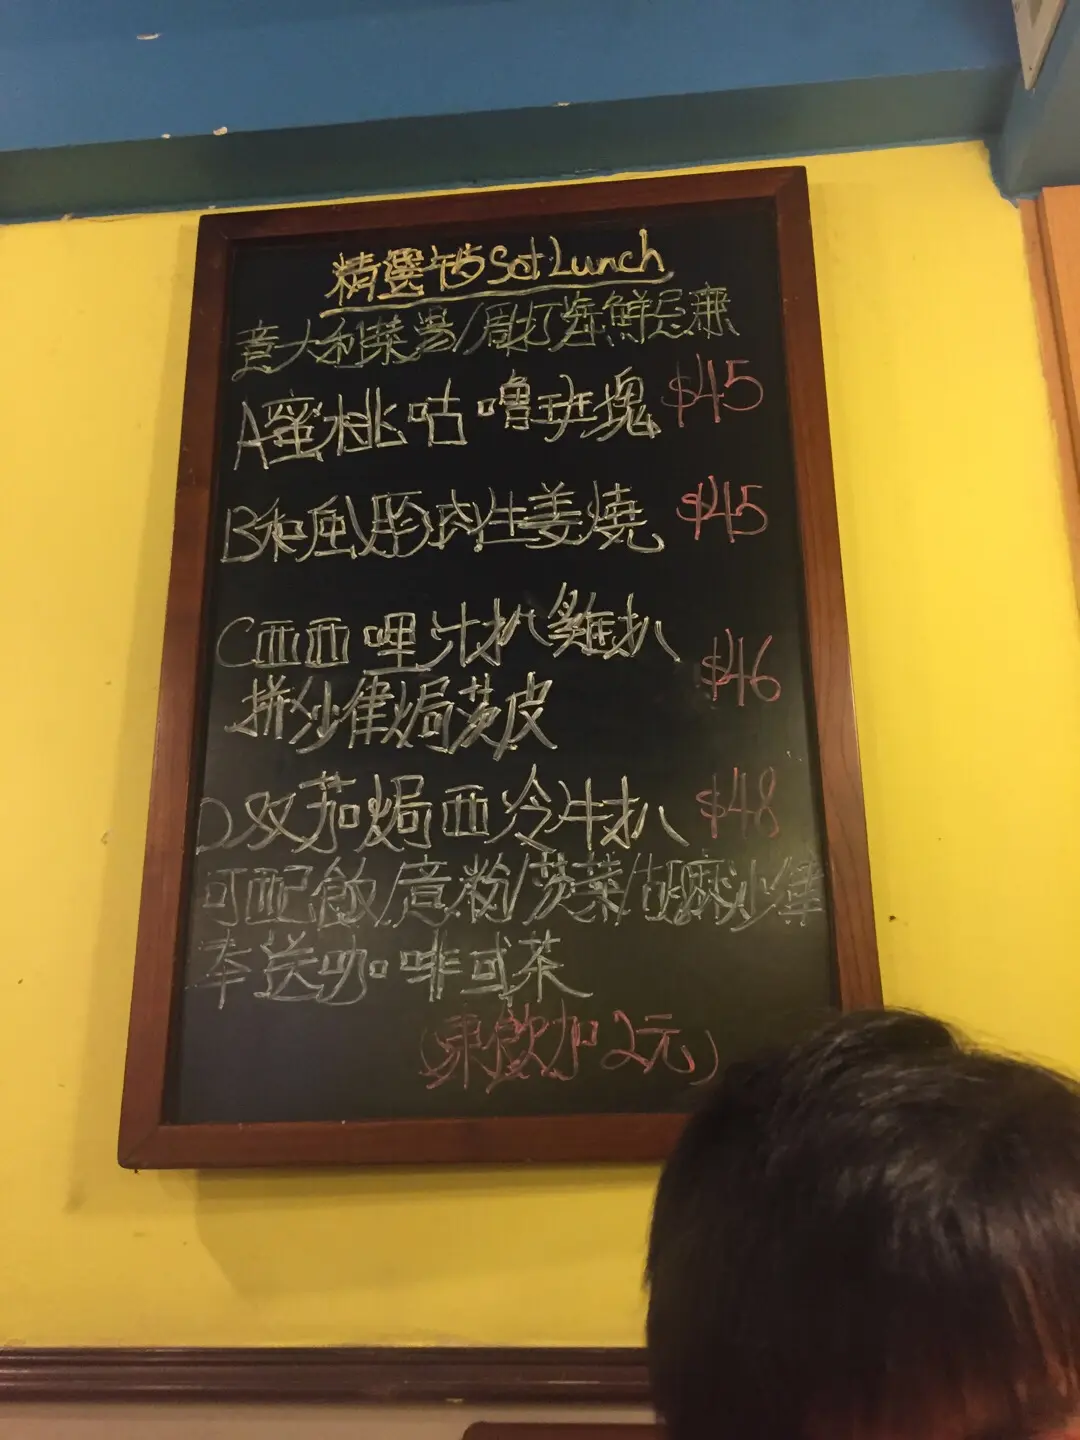 精選午市Set Lunch
意大利菜湯/周打海鮮忌廉
A蜜桃咕嚕斑塊 $45
B和風豚肉生姜燒 $45
C西西哩汁扒雞扒 $46
拼沙隹焗茨皮
D双茄焗西冷牛扒 $48
可配飯/意粉/茨菜/胡麻沙隼
奉送咖啡或茶
(凍飲加2元)